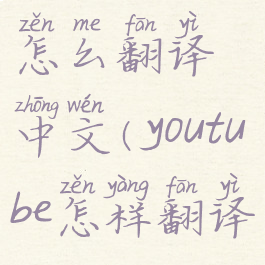 zěn me fān yì
怎么翻译
zhōng wén
中文(youtu
zěn yàng fān yì
be怎样翻译